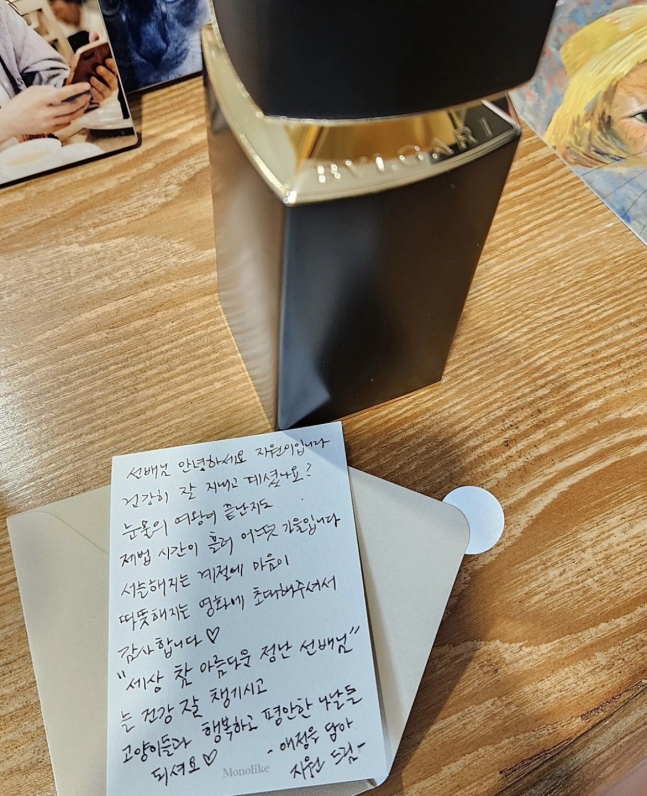 BVLGARI
선배님 안녕하세요 지원이입니다
건강히 잘 지내고 계셨나요?
눈물의 여왕이 끝난지도
제법 시간이 흘러 어느덧 가을입니다
서늘해지는 계절에 마음이
따뜻해지는 영화에 초대해주셔서
감사합니다♡
"세상 참 아름다운 정난 선배님"
늘 건강 잘 챙기시고
고양이들과 행복하고 평안한 나날들
되셔요♡
- 애정을 담아
지원 드림-
Monolike